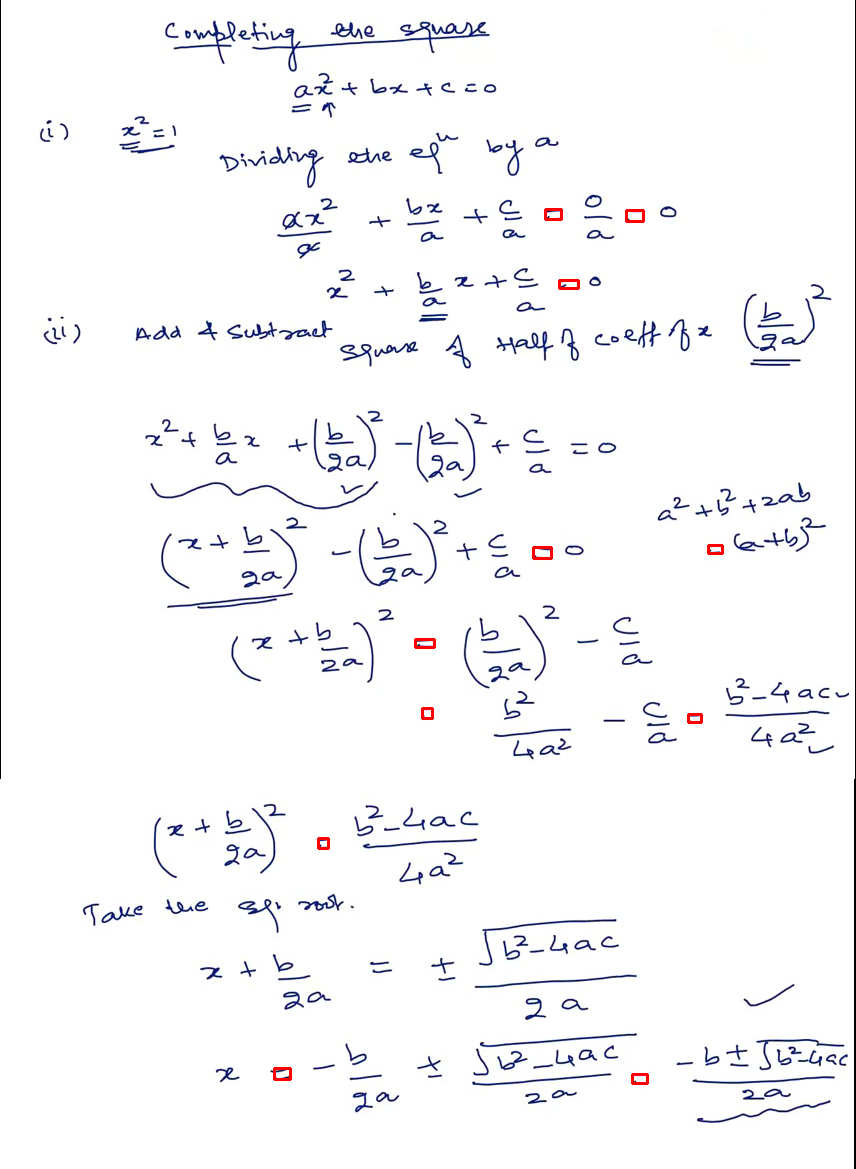 Completing the square
ax² + bx + c = 0
(i) x² = 1
Dividing the eqⁿ by a
ax²/a + bx/a + c/a 0/a 0
x² + b/a x + c/a 0
(ii) Add & Subtract square of Half of coeff of x (b/2a)²
x² + b/a x + (b/2a)² - (b/2a)² + c/a = 0
a² + b² + 2ab
(a+b)²
(x + b/2a)² - (b/2a)² + c/a 0
(x + b/2a)² (b/2a)² - c/a
b²/4a² - c/a b²-4ac/4a²
(x + b/2a)² b²-4ac/4a²
Take the sq. root.
x + b/2a = ± √b²-4ac/2a
x - b/2a ± √b²-4ac/2a -b ± √b²-4ac/2a